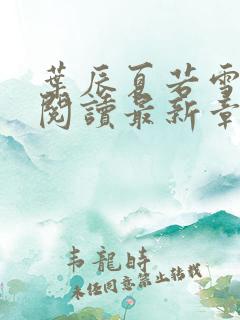 葉辰夏若雪
閱讀最新章
韋龍時
未經同意禁止轉載